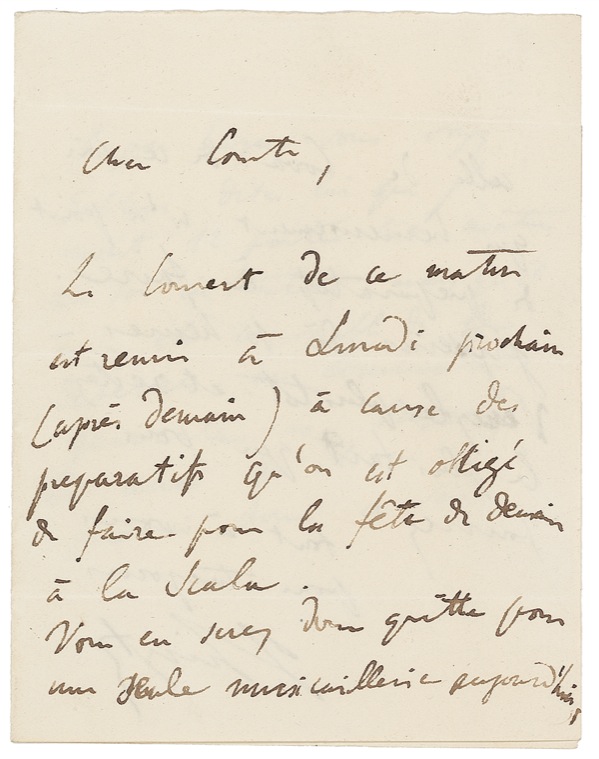 Cher Comte,
Le Concert de ce matin
est remis à Lundi prochain
(après demain) à cause des
preparatifs qu'on est obligé
de faire pour la fête de demain
à la Scala.
Vous en serez donc quitte pour
une seule musicaillerie aujourd'hui,